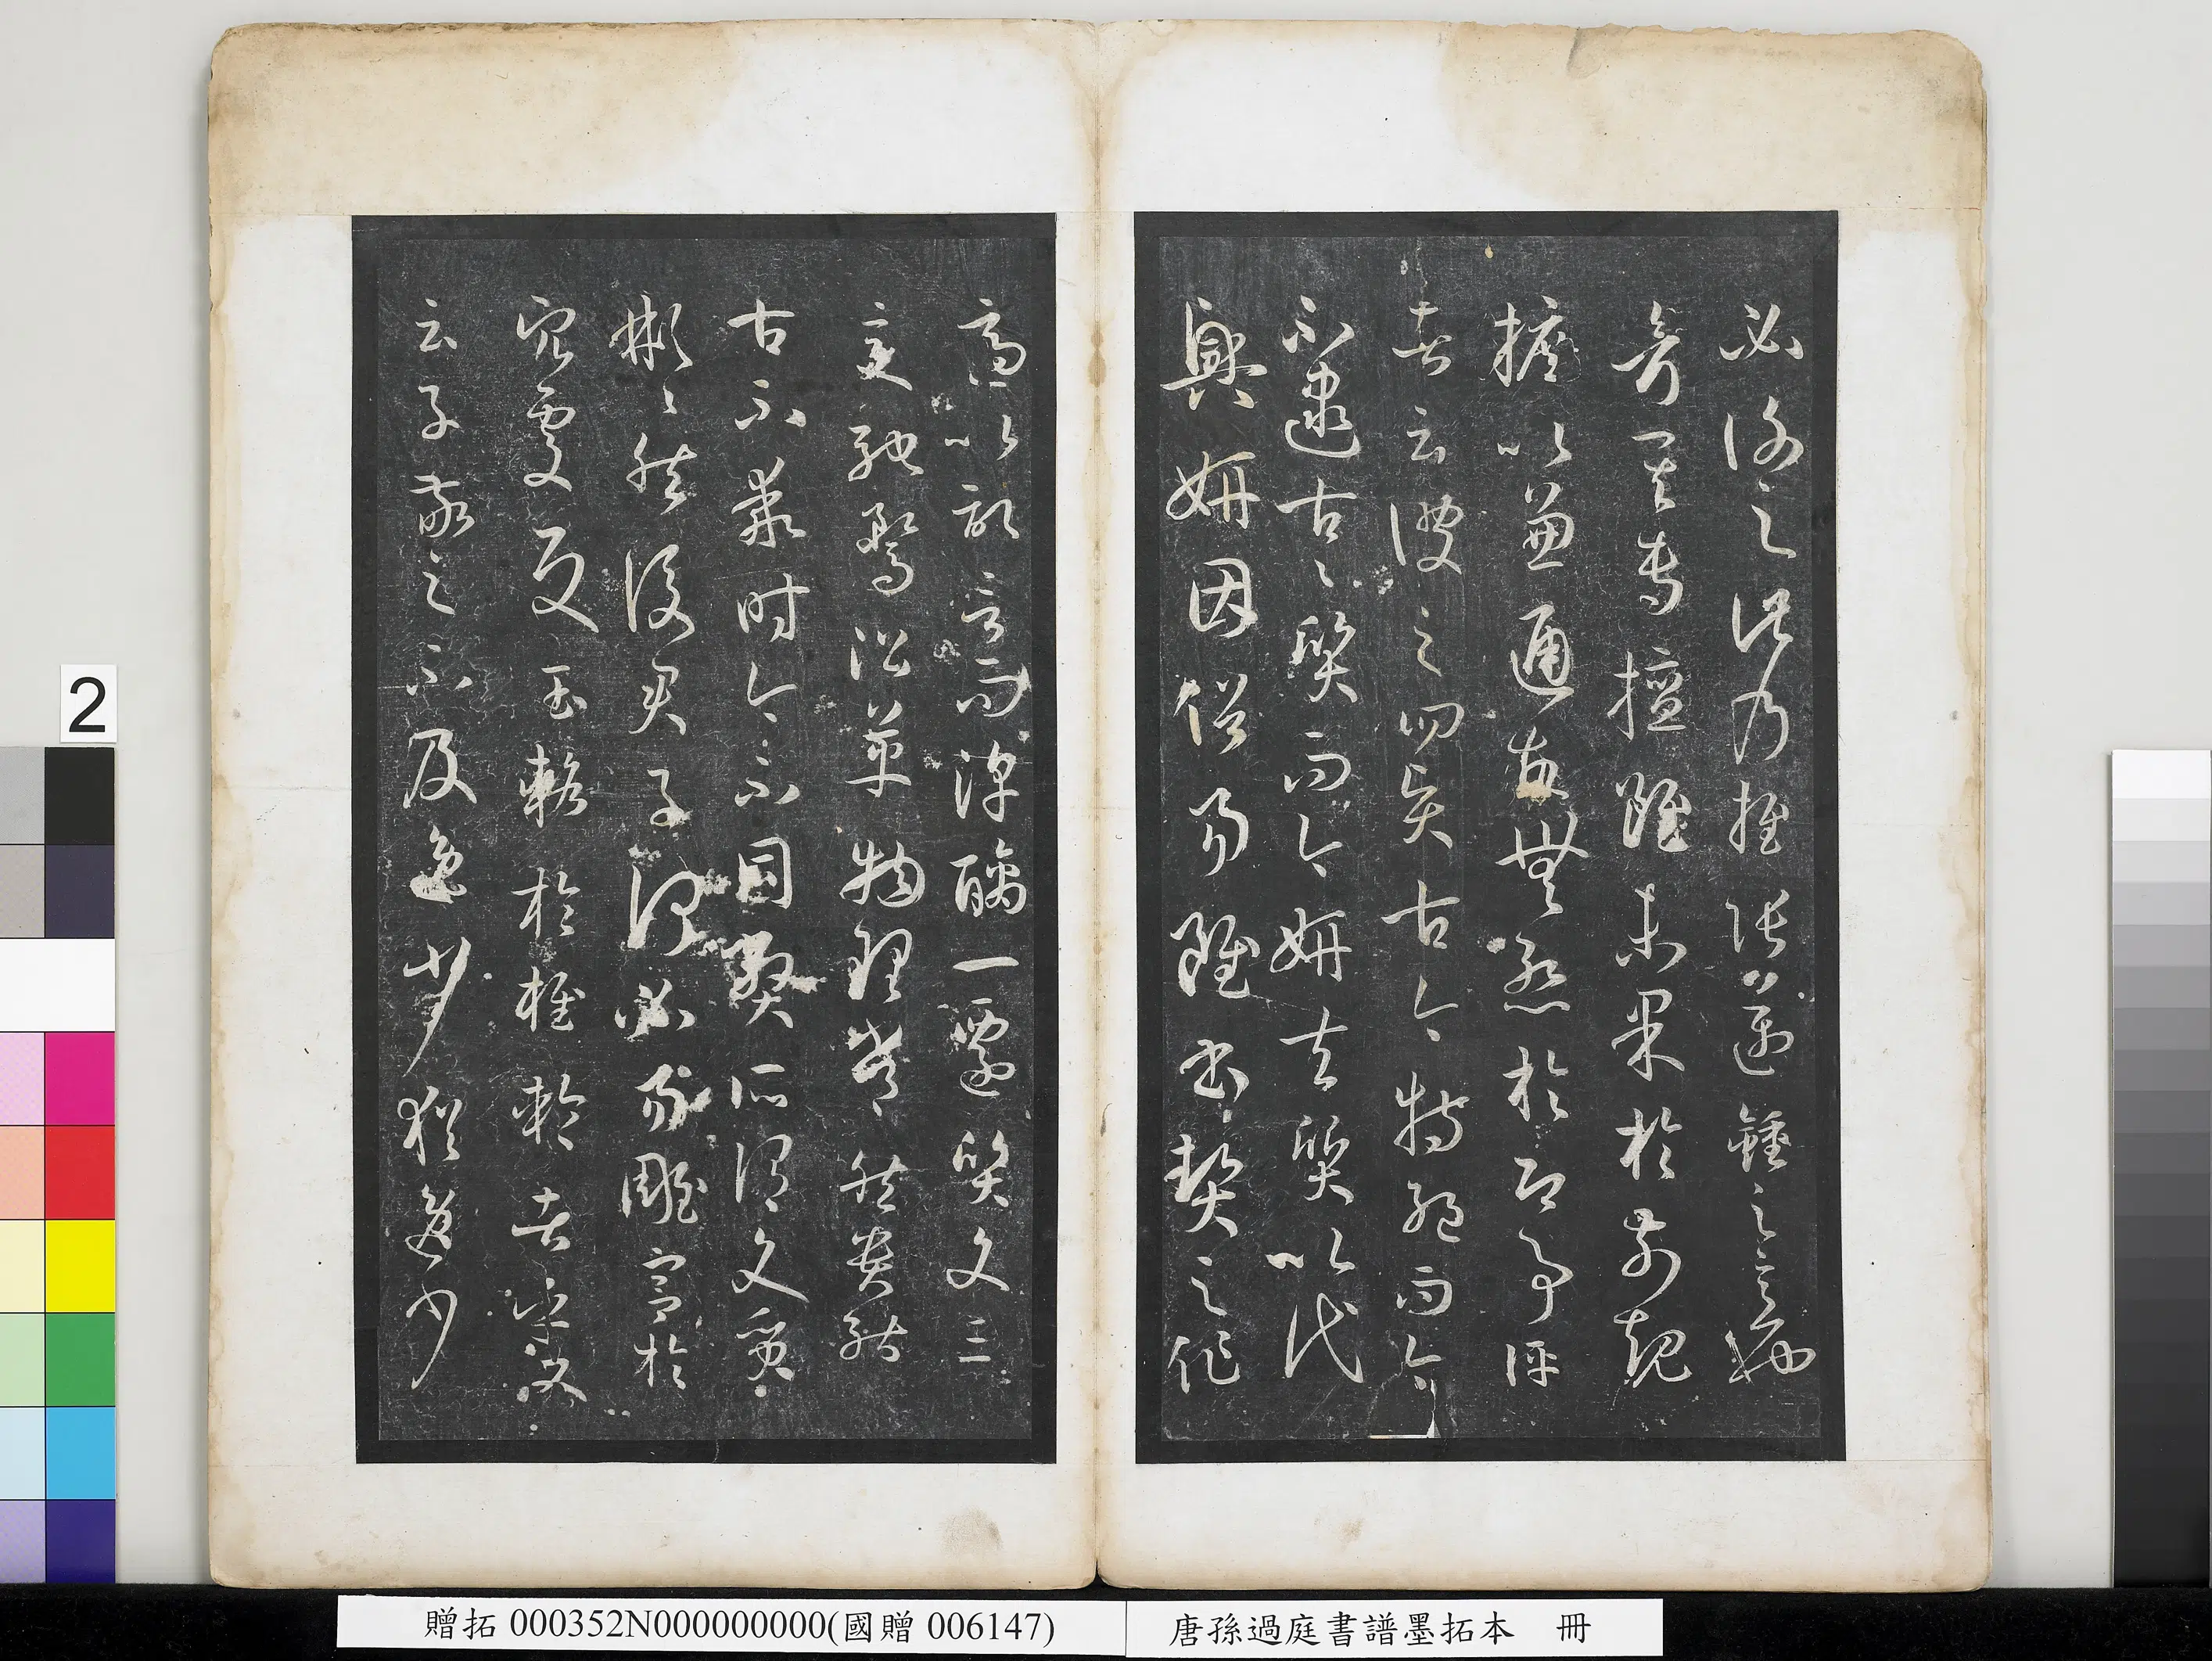 必謝之此乃推張邁鍾之意也
考其專擅雖未果於前規
摭以兼通故無慚於即事評
者云彼之四賢古今特絕而今
不逮古〻質而今妍夫質以代
興妍因俗易雖書契之作
適以記言而淳醨一遷質文三
變馳騖沿革物理常然貴能
古不乖時今不同弊所謂文質
彬〻然後君子何必易雕宮於
穴處反玉輅於椎輪者乎又
云子敬之不及逸少猶逸少
2
贈拓 000352N000000000(國贈 006147)
唐孫過庭書譜墨拓本 冊